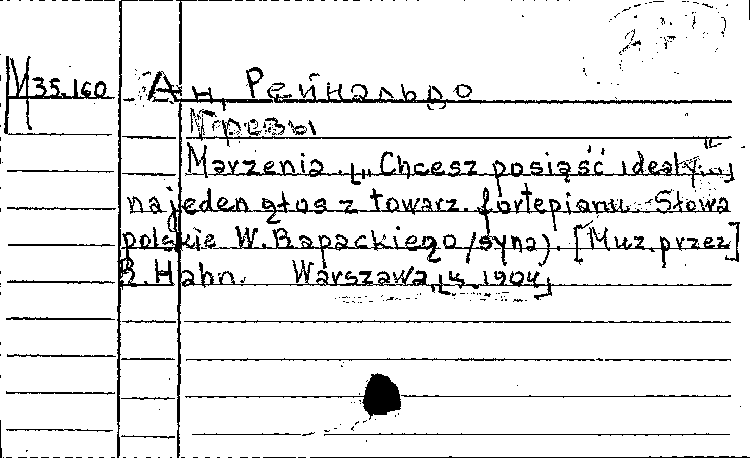 М 35.160 Ан, Рейнальдо
Грезы
Marzenia. [„Chcesz posiąść ideały..."]
na jeden głos z towarz. fortepianu. Słowa
polskie W. Rapackiego /syna). [Muz. przez]
R. Hahn. Warszawa, [s. 1904]